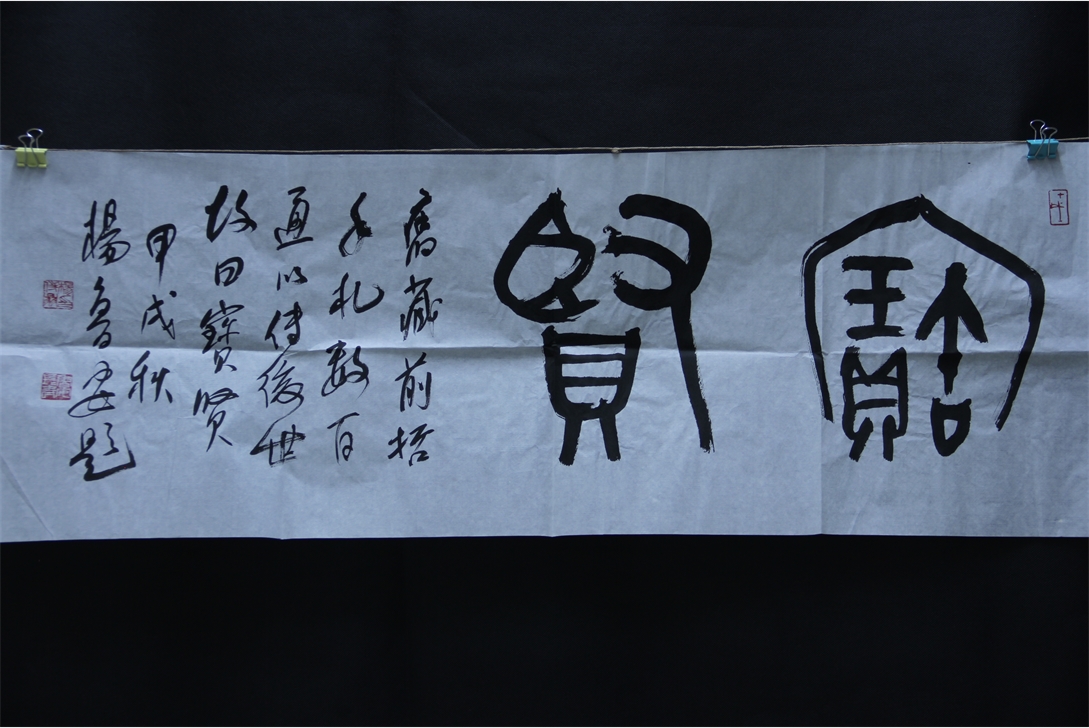 寶賢
舊藏前哲
手札數百
通以傳後世
故曰寶賢
甲戌秋
楊魯安題